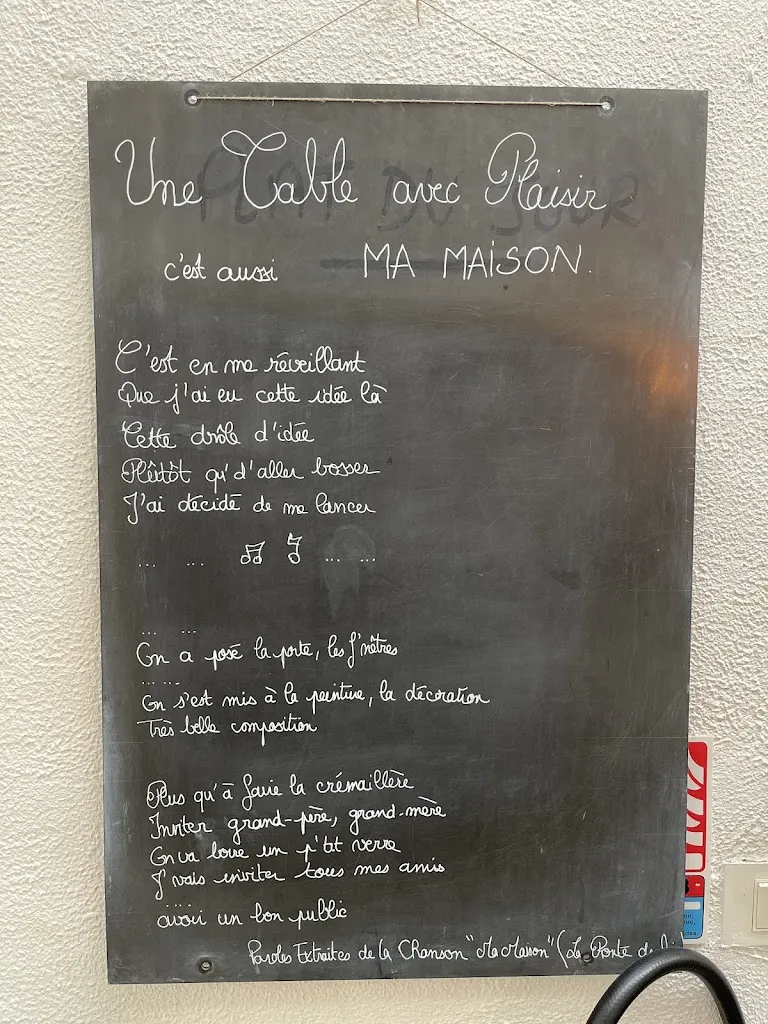 Une Table avec Plaisir
PLAT DU JOUR
c'est aussi MA MAISON.
C'est en me réveillant
Que j'ai eu cette idée là
Cette drôle d'idée
Plûtôt qu'd'aller bosser
J'ai décidé de me lancer
... ... ... ...
... ...
On a posé la porte, les f'nêtres
... ...
On s'est mis à la peinture, la décoration
Très belle composition
Plus qu'à faire la crémaillère
Inviter grand-père, grand-mère
On va boire un p'tit verre
J'vais inviter tous mes amis
....
avoir un bon public
Paroles Extraites de la Chanson "Ma Maison" (La Ronte de